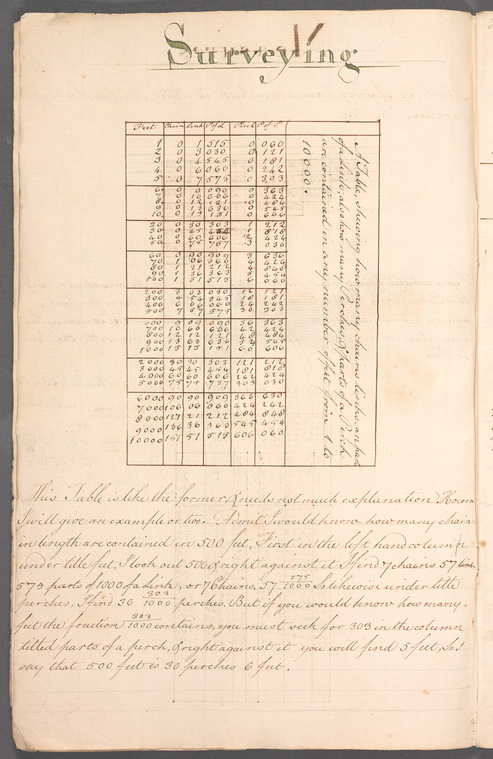 Surveying
Feet Chain Link P of L Perch P of P
1 0 1 515 0 060
2 0 3 030 0 121
3 0 4 545 0 181
4 0 6 060 0 242
5 0 7 575 0 303
6 0 9 090 0 363
7 0 10 0 424
8 0 12 121 0 484
9 0 13 636 0 545
10 0 15 151 0 606
20 0 30 303 1 212
30 0 45 1 818
40 0 60 606 2 424
50 0 75 757 3 030
60 0 90 909 3 636
70 1 06 060 4 242
80 1 21 212 4 848
90 1 36 363 5 454
100 1 51 515 6 060
200 3 03 030 12 121
300 4 54 545 18 181
400 6 06 060 24 242
500 7 57 575 30 303
600 9 09 090 36 363
700 10 60 606 42 424
800 12 12 121 48 484
900 13 63 636 54 545
1000 15 15 151 60 606
2000 30 30 303 121 212
3000 45 45 454 181 818
4000 60 60 606 242 424
5000 75 75 757 303 030
6000 90 90 909 363 630
7000 106 06 060 424 242
8000 121 21 212 484 848
9000 136 36 363 545 454
10000 151 51 515 606 060
A Table shewing how many chains links, and parts
of a Link; also how many Perches & parts of a Perch
are contained in any number of feet from 1 to
10000.
This Table is like the former, & needs not much explanation
I will give an example or two. Admit I would know how many chain
in length are contained in 500 feet, First in the left hand column
under title feet, I look out 500 & right against it I find 7 chains 57 links
575 parts of 1000 of a Link, or 7 Chains, 57 575/1000 So likewise under title
perches, I find 30 303/1000 perches. But if you would know how many
feet the fraction 303/1000 contains, you must seek for 303 in the column
titled parts of a perch, & right against it you will find 5 feet, So I
say that 500 feet is 30 perches 6 feet.